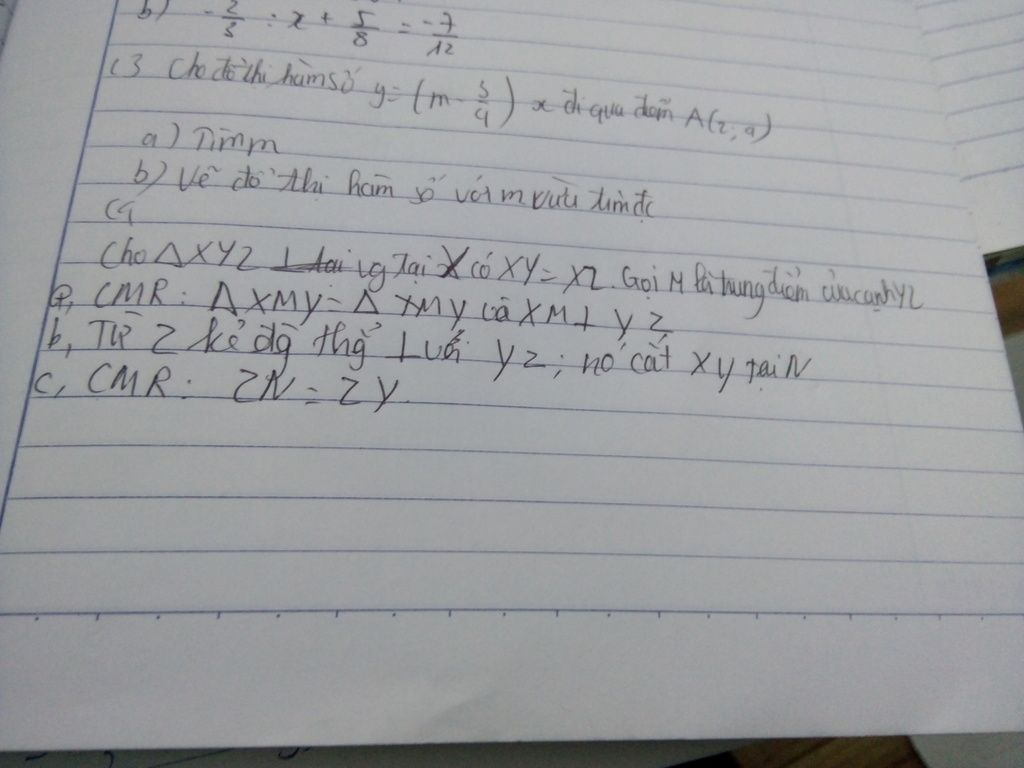 b) -2/3 : x + 5/8 = -7/12
C3 Cho đồ thị hàm số y = (m - 3/4) x đi qua điểm A(2; 9)
a) Tìm m
b) Vẽ đồ thị hàm số với m vừa tìm đc
C4
Cho ΔXYZ vg tại X có XY = XZ. Gọi M là trung điểm của cạnh YZ
a, CMR: ΔXMY = ΔXMY và XM ⊥ YZ
b, Từ Z kẻ đg thẳ ⊥ với YZ; nó cắt XY tại N
c, CMR: ZN = ZY.